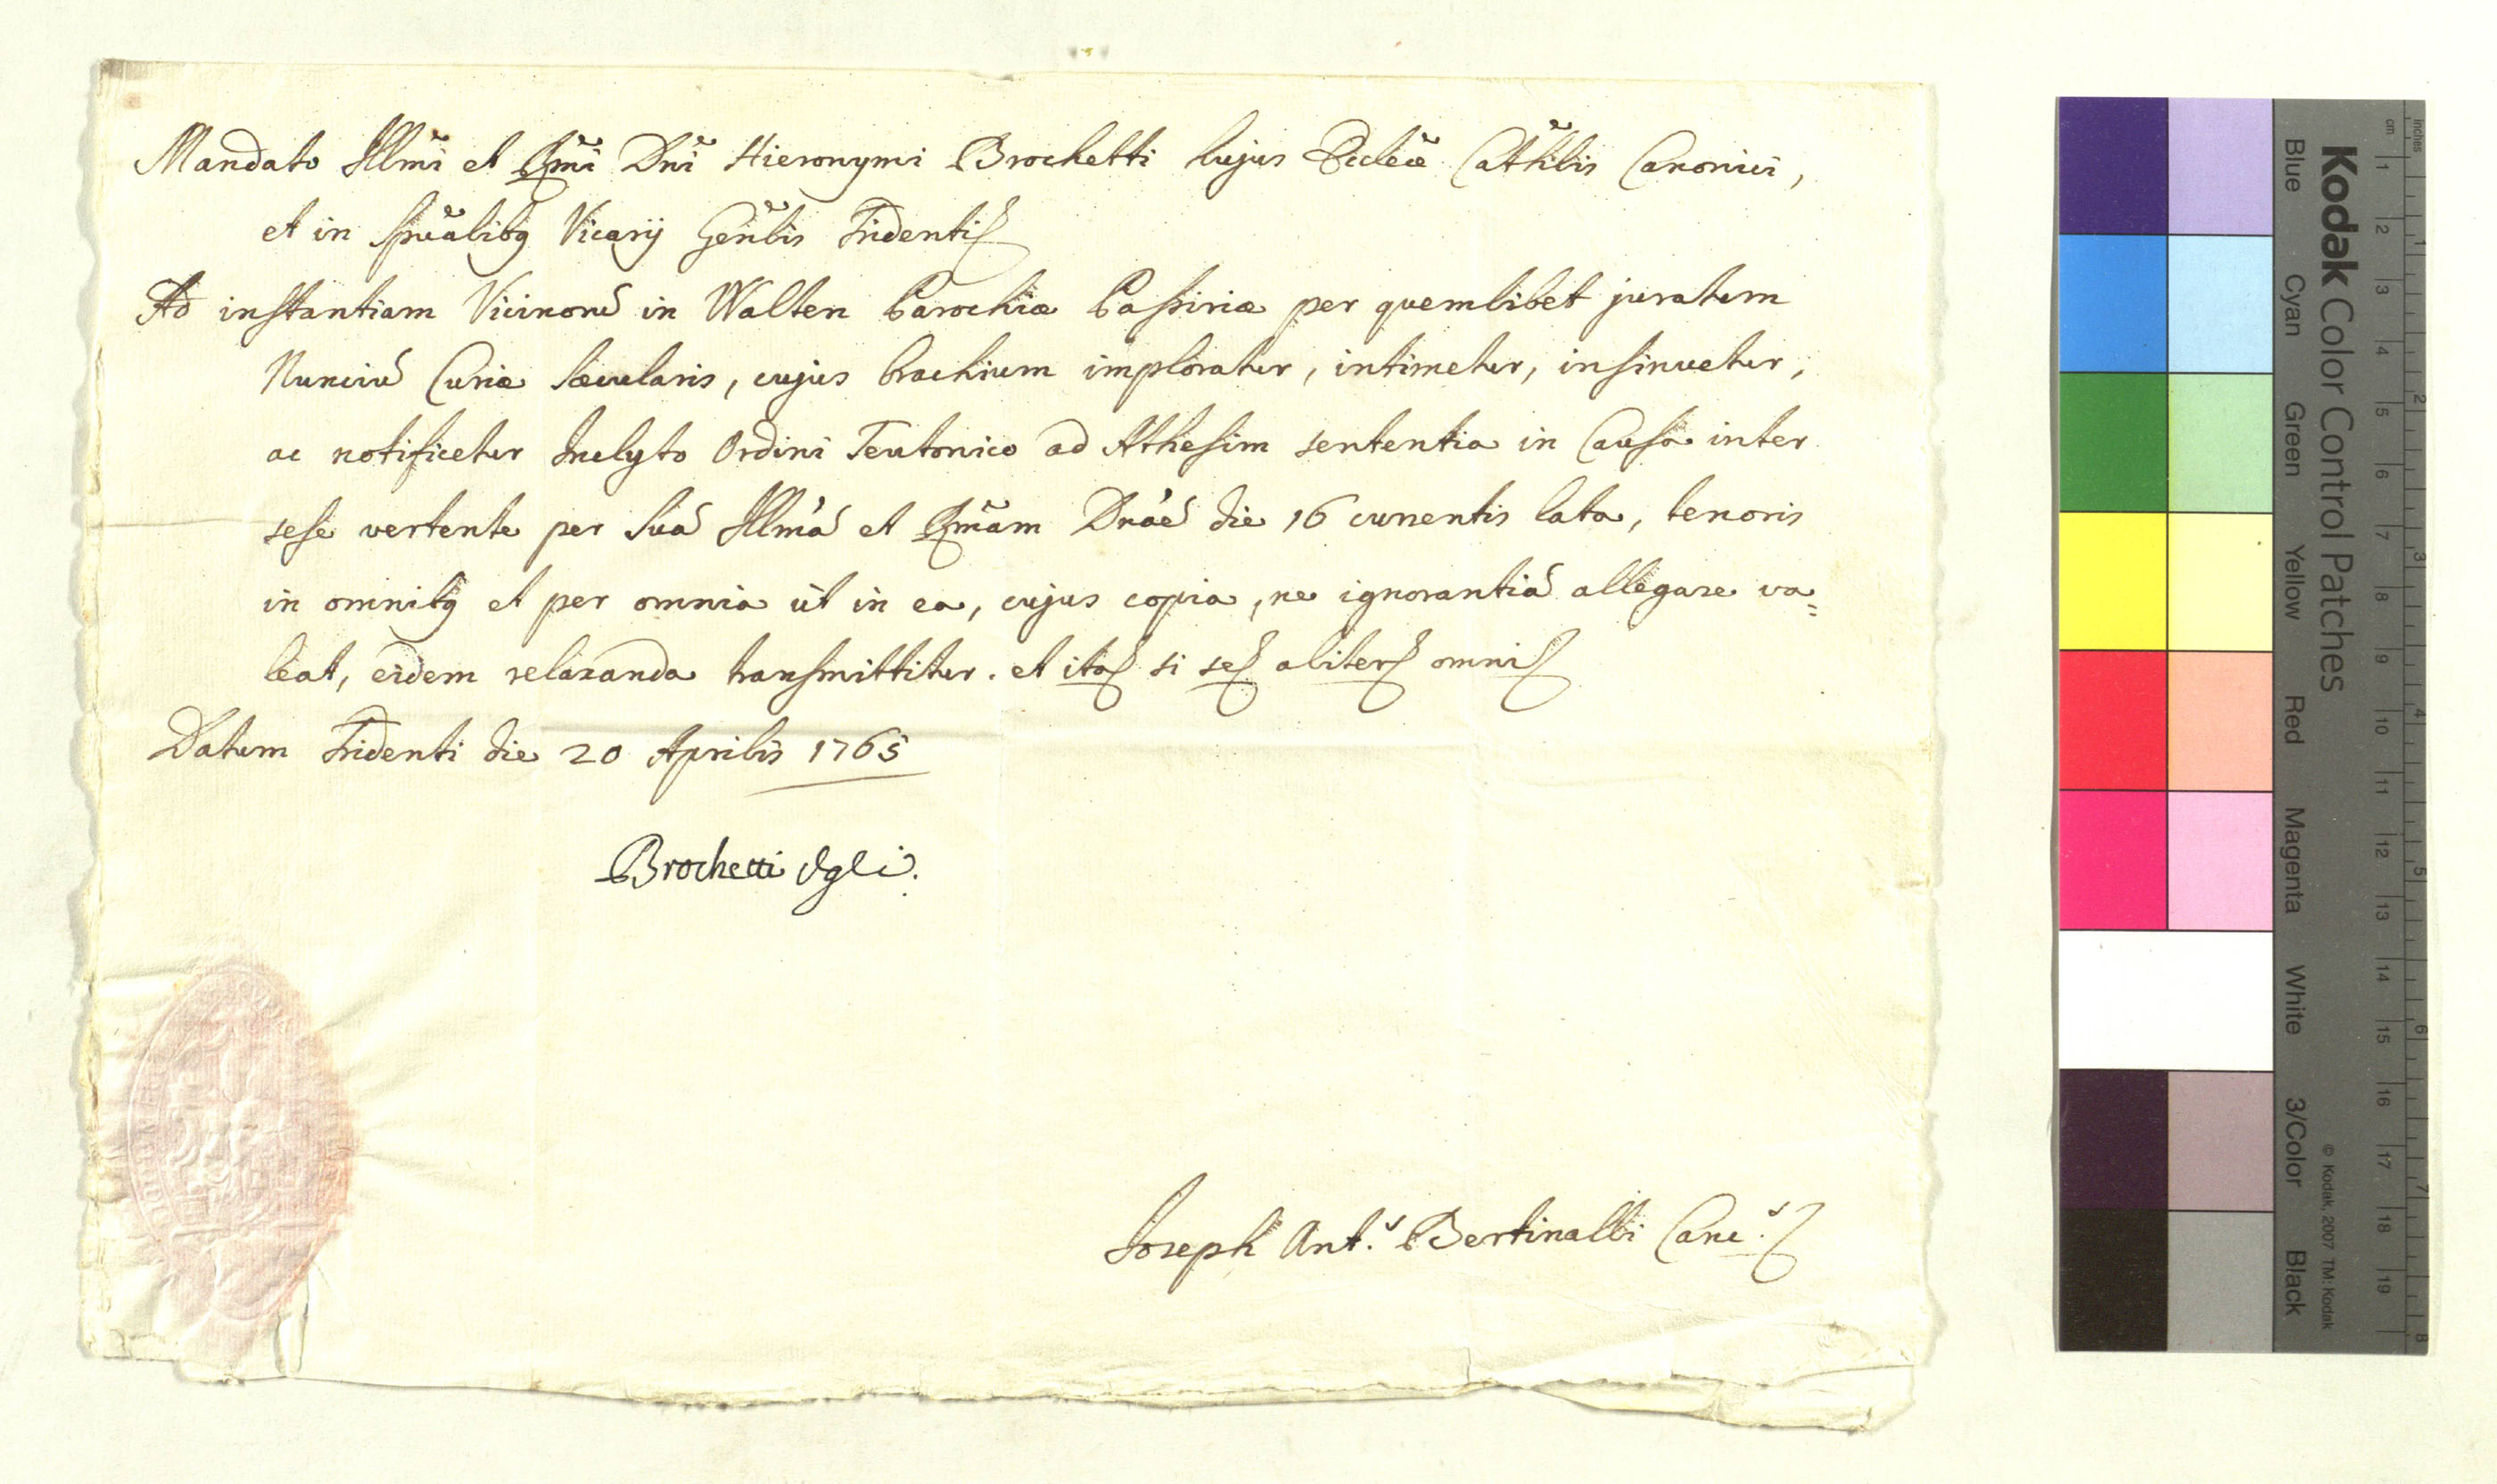 Mandato Illm̃i et Rm̃i Dnĩ Hieronymi Brochetti hujus Eccleæ̃ Cãthlis Canonici,
et in Spũalibq Vicarij Geñlis Tridenti
Ad instantiam Vicinorũ in Walten Parochiæ Passiriæ per quemlibet juratum
Nunciũ Curiæ Sæcularis, cujus brachium imploratur, intimetur, insinuetur,
ac notificetur Inclyto Ordini Teutonico ad Athesim sententia in Causa inter
sese vertente per Suã Illmã et Rm̃am Dnãe die 16 currentis lata, tenoris
in omnibq et per omnia ut in ea, cujus copia, ne ignorantiã allegare va=
leat, eidem relaxanda transmittitur. et ita si se aliter omni
Datum Tridenti die 20 Aprilis 1765
Brochetti
Joseph Ant.s Bertinalli Canc.s
Kodak Color Control Patches
Blue Cyan Green Yellow Red Magenta White 3/Color Black
© Kodak, 2007 TM: Kodak
cm 1 2 3 4 5 6 7 8 9 10 11 12 13 14 15 16 17 18 19
inches 1 2 3 4 5 6 7 8